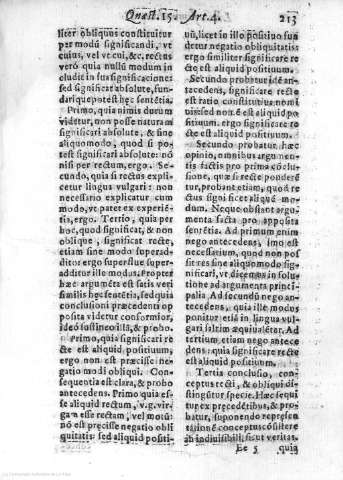 Quæst. 15. Art. 4. 213
liter obliquus constituitur
per modũ significandi, vt
cuius, vel vt cui, &c. rectus
verò quia nullũ modum in
cludit in sua significacione:
sed significat absolute, fun-
dari quepotest hęc sentẽtia.
Primo, quia nimis durum
videtur, non posse naturam
significari absolute, & sine
aliquo modo, quod si po-
test significari absolute: nõ
nisi per rectum, ergo. Se-
cundo, quia si rectus expli-
cetur lingua vulgari: non
necessario explicatur cum
modo, vt patet ex experiẽ-
tia, ergo. Tertio, quia per
hoc, quod significat, & non
oblique, significat recte,
etiam sine modo superad-
ditor ergo superflue super-
additur ille modus. Propter
hæc argumẽta est satis veri
similis hęc senẽtia, sed quia
conclusioni præcedenti op
posita videtur conformior,
ideo sustineo illã, & probo.
Primo, quia significari re
cte est aliquid positiuum,
ergo non est præcisse nega-
tio modi obliqui. Con-
sequentia est clara, & probo
antecedens. Primo quia es-
se aliquid rectum, v.g. vir-
gam esse rectam, vel motũ:
nõ est præcisse negatio obli
quitatis: sed aliquid positi-
uũ, licet in illo positiuo fun
detur negatio obliquitatis:
ergo similiter significare re
cte est aliquid positiuum.
Secundo probatur idẽ an-
tecedens, significare recte
est ratio constitutiua nomi
uis sed nõ nẽ est aliquid posi
tiuum: ergo significare re-
cte est aliquid positiuum.
Secundo probatur hæc
opinio, omnibus argumen
tis factis pro prima cõclu-
sione, quæ si recte põderẽ
tur, probant etiam, quod re
ctus significet aliquẽ mo-
dum. Neque obstant argu-
mẽta facta pro apposita
sentẽtia. Ad primum enim
nego antecedens, imo est
necessarium, quod non pos
sit res sine aliquo modo sig-
nificari, vt dicemus in solu-
tione ad argumenta princi-
palia. Ad secundũ nego an-
tecedens, quia ille modus
ponitur etiã in lingua vul-
gari saltim æquiualẽter. Ad
tertium etiam nego antece
dens: quia significare recte
est aliquid positiuum.
Tertia conclusio, con-
ceptus recti, & obliqui di-
stinguũtur specie. Hæc sequi
tur ex præcedẽtibus, & pro-
batur, suponendo represen
tationẽ conceptus cõsistere
in indiuisibili, sicut veritas.
Ee 5 quia